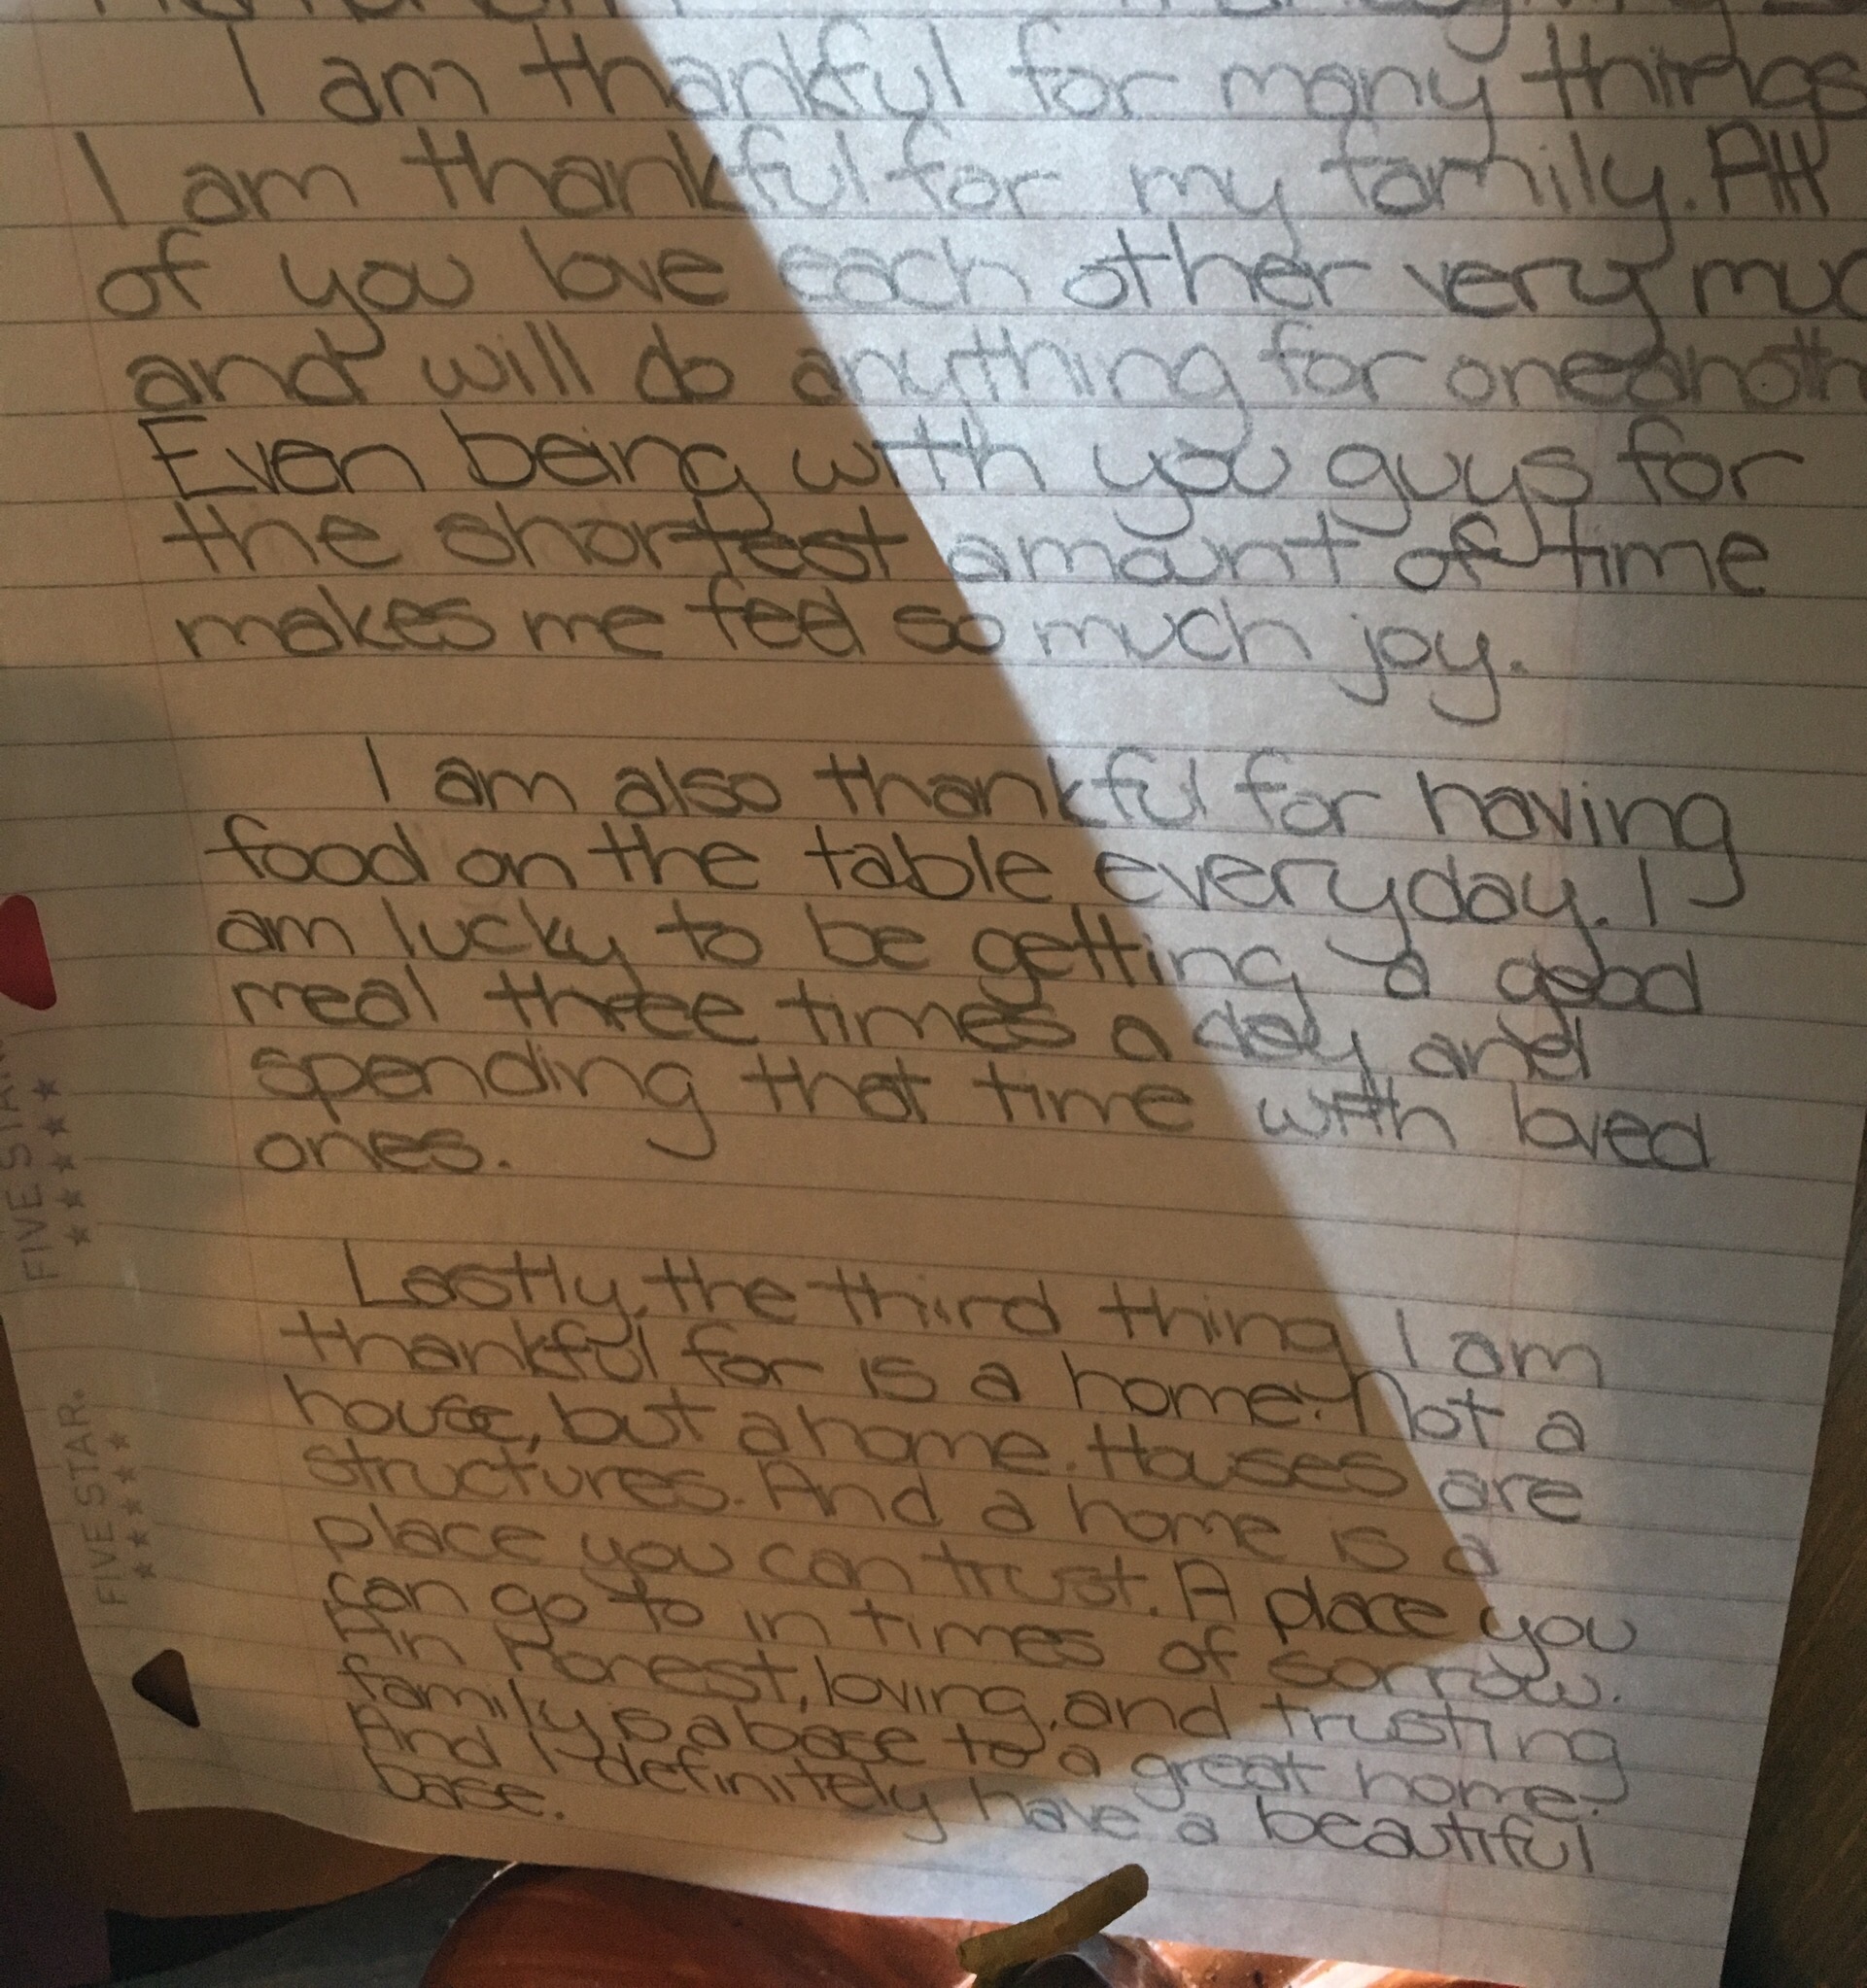 I am thankful for many things
I am thankful for my family. All
of you love each other very muc
and will do anything for one anoth
Even being with you guys for
the shortest amount of time
makes me feel so much joy.
I am also thankful for having
food on the table everyday. I
am lucky to be getting a good
meal three times a day and
spending that time with loved
ones.
Lastly, the third thing I am
thankful for is a home. Not a
house, but a home. Houses are
structures. And a home is a
place you can trust. A place you
can go to in times of sorrow.
An honest, loving, and trusting
family is a base to a great home.
And I definitely have a beautiful
base.
FIVE STAR
FIVE STAR.